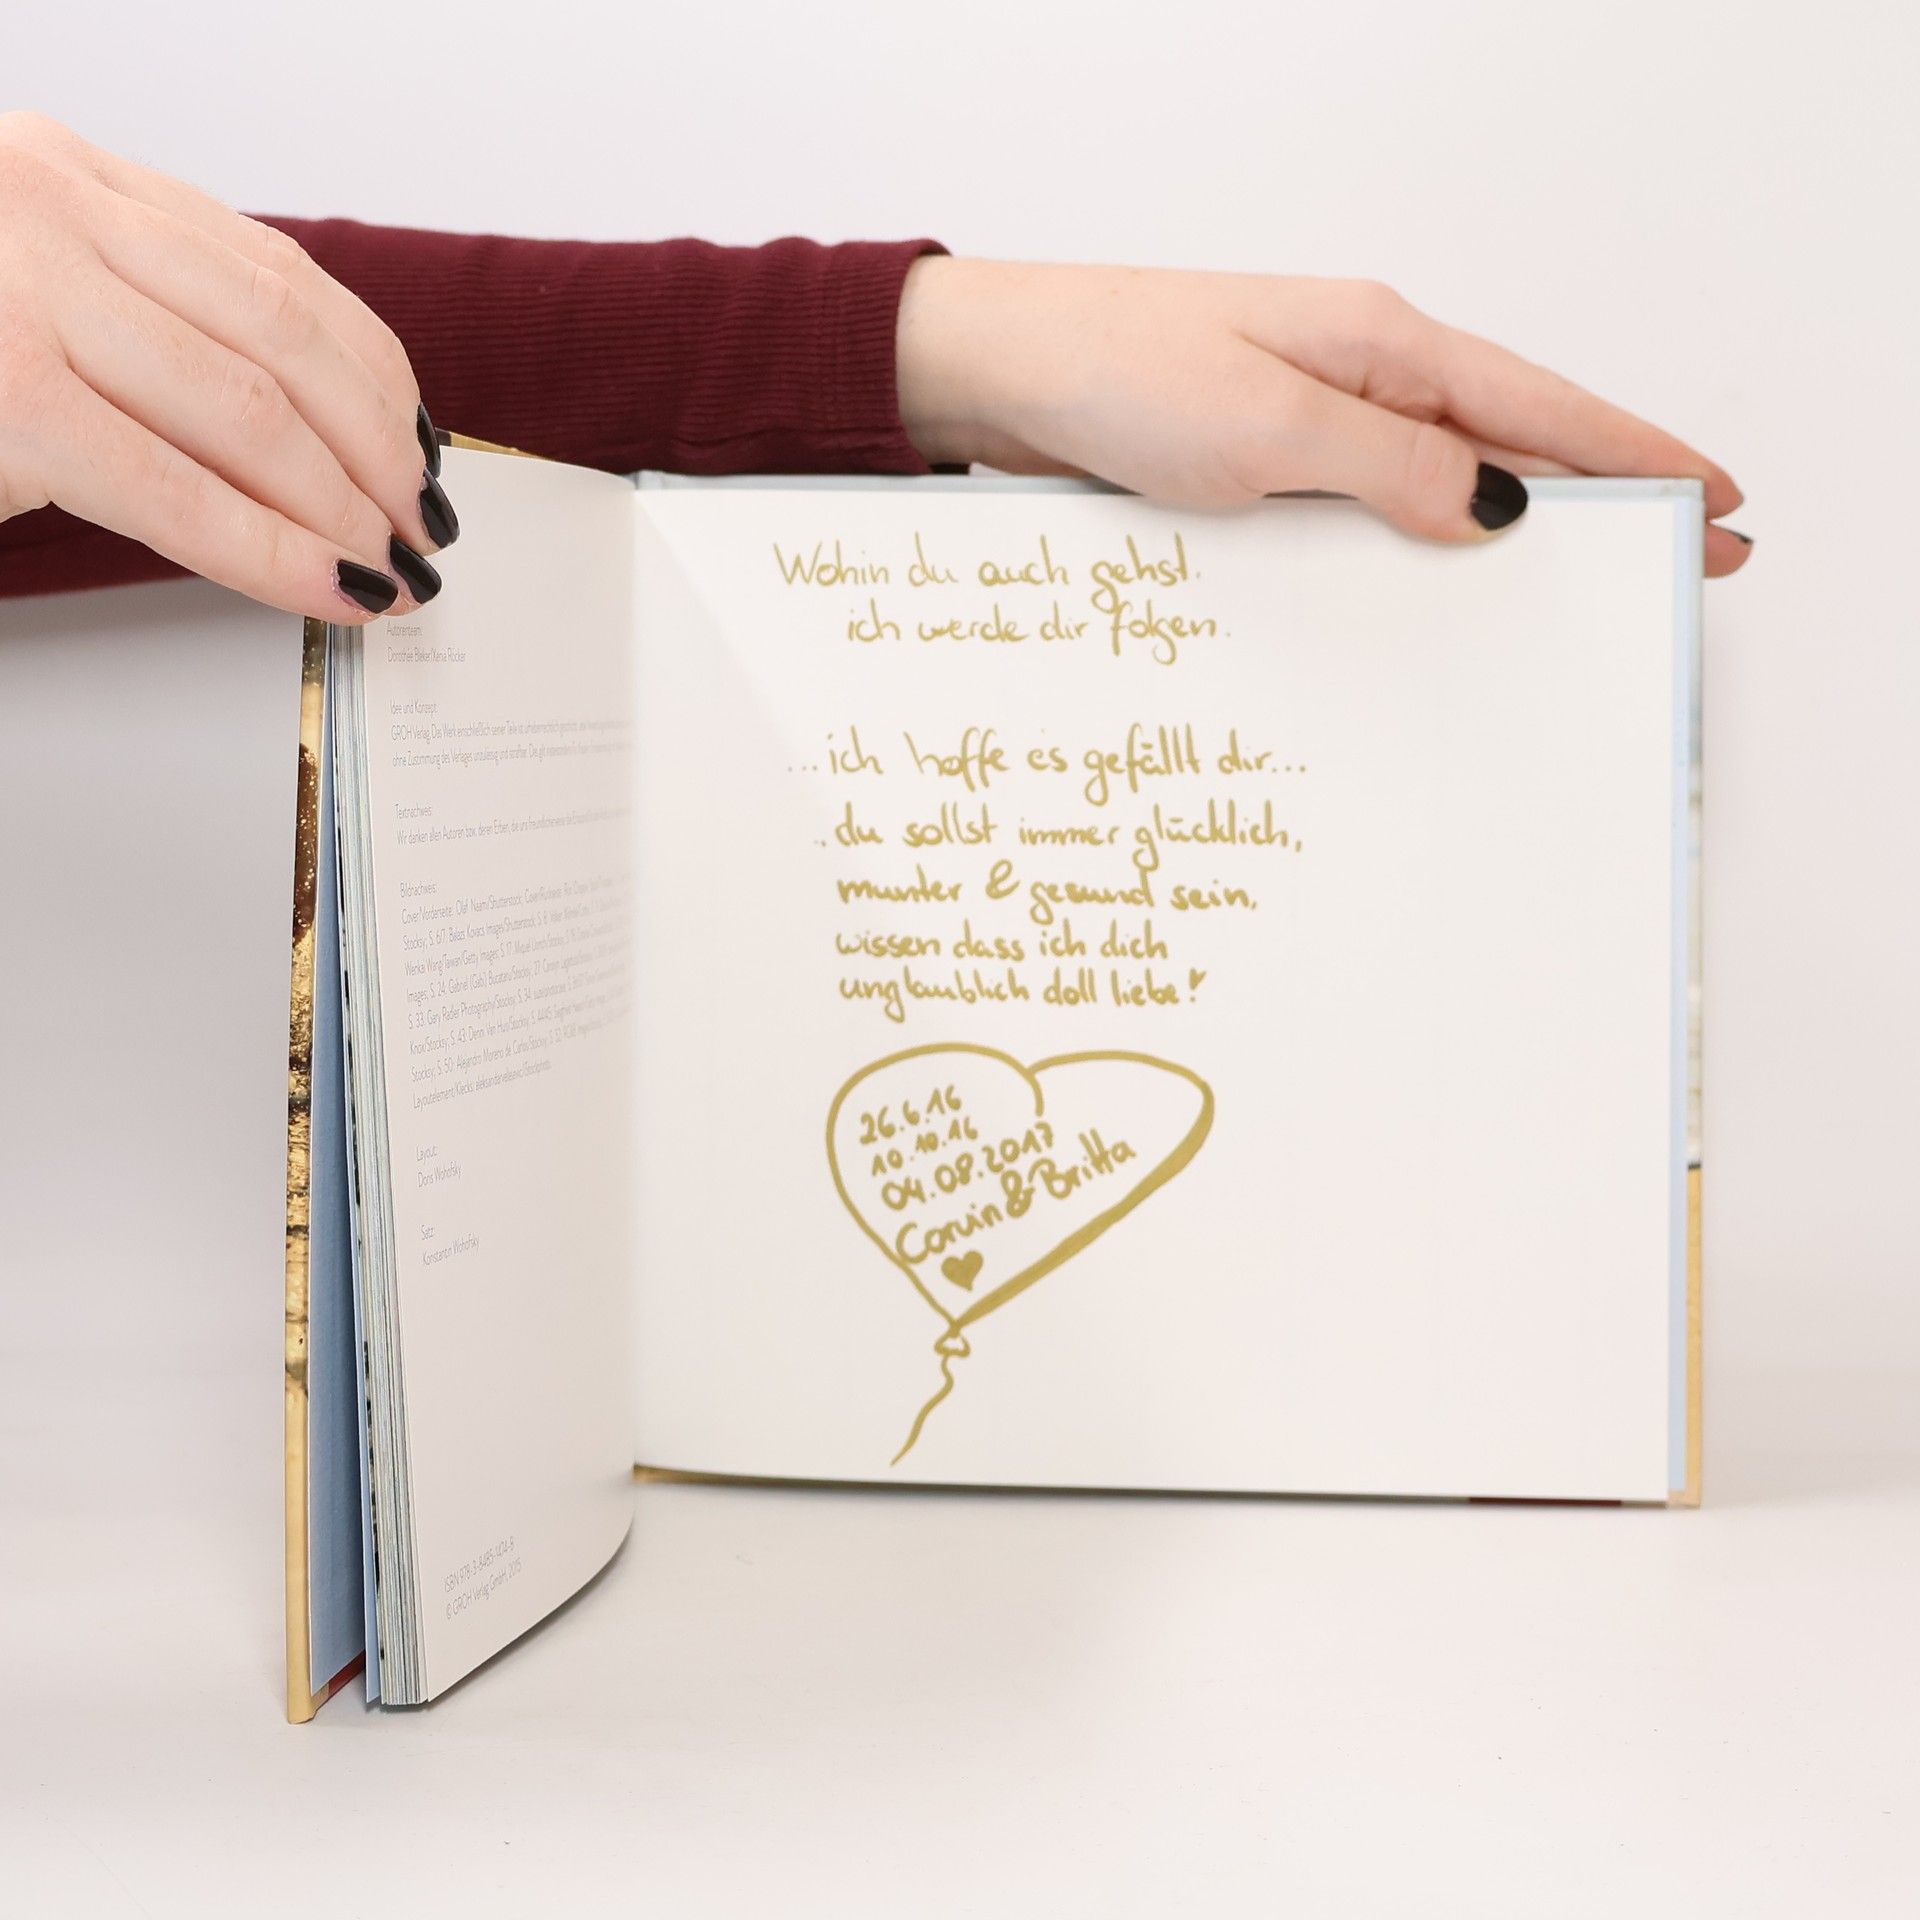 Autorenteam:
Dorothée Bleker/Xenia Röcker
Idee und Konzept:
GROH Verlag. Das Werk einschließlich seiner Teile ist urheberrechtlich geschützt,
ohne Zustimmung des Verlages unzulässig und strafbar. Dies gilt insbesondere für
Textnachweis:
Wir danken allen Autoren bzw. deren Erben, die uns freundlicherweise die
Bildnachweis:
Cover Vorderseite: Olaf Naami/Shutterstock; Cover Rückseite:
Stocksy; S. 6/7: Balazs Kovacs Images/Shutterstock; S. 8:
Wenkai Wang/Taiwan/Getty Images; S. 17:
Images; S. 24: Gabriel (Gabi) Bucataru/Stocksy; 27:
S. 33: Gary Radler Photography/Stocksy; S. 34:
Knox/Stocksy; S. 43: Denni Van Huis/Stocksy; S. 44/45:
Stocksy; S. 50: Alejandro Moreno de Carlos/Stocksy; S. 52:
Layoutelement/Klecks:
Layout:
Doris Wohofsky
Satz:
Konstantin Wohofsky
ISBN 978-3-8485-1404-8
© GROH Verlag GmbH, 2015
Wohin du auch gehst.
ich werde dir folgen.
...ich hoffe es gefällt dir...
..du sollst immer glücklich,
munter & gesund sein,
wissen dass ich dich
unglaublich doll liebe!
26.6.16
10.10.16
04.08.2017
Corvin & Britta